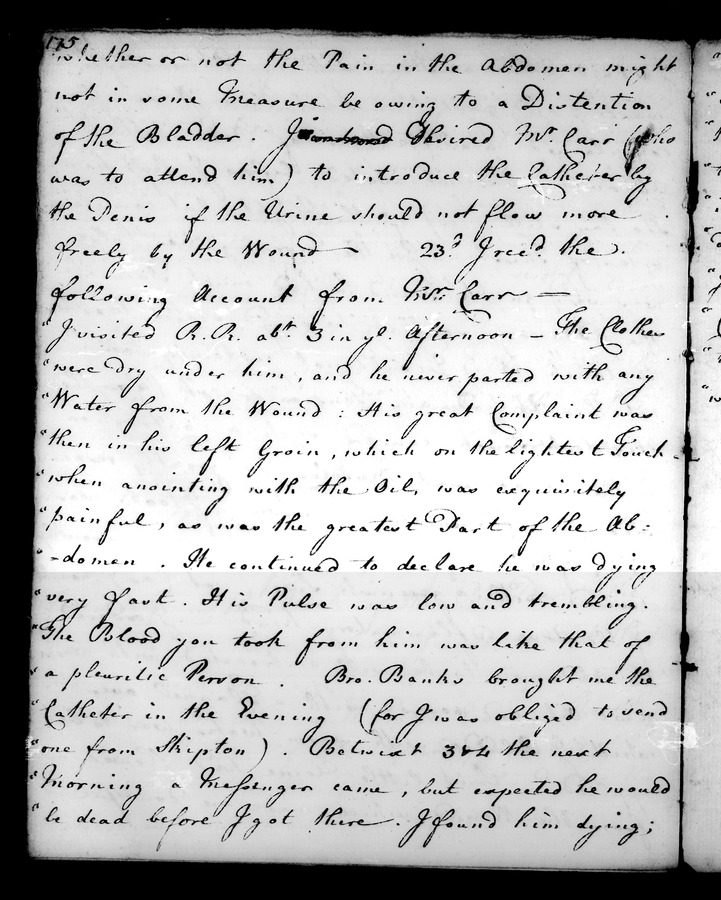 175
whether or not the Pain in the Abdomen might
not in some Measure be owing to a Distention
of the Bladder. I desired Mr. Carr (who
was to attend him) to introduce the Catheter by
the Penis if the Urine should not flow more
freely by the Wound — 23d I recd. the
following Account from Mr. Carr —
"I visited R. R. abt. 3 in ye. Afternoon – The Clothes
"were dry under him, and he never parted with any
"Water from the Wound: His great Complaint was
"then in his left Groin, which on the lightest Touch
"when anointing with the Oil, was exquisitely
"painful, as was the greatest Part of the Ab:
"-domen. He continued to declare he was dying
"very fast. His Pulse was low and trembling.
"The Blood you took from him was like that of
"a pleuritic Person. Bro. Banks brought me the
"Catheter in the Evening (for I was obliged to send
"one from Skipton). Betwixt 3 & 4 the next
"Morning a Messenger came, but expected he would
"be dead before I got there. I found him dying;